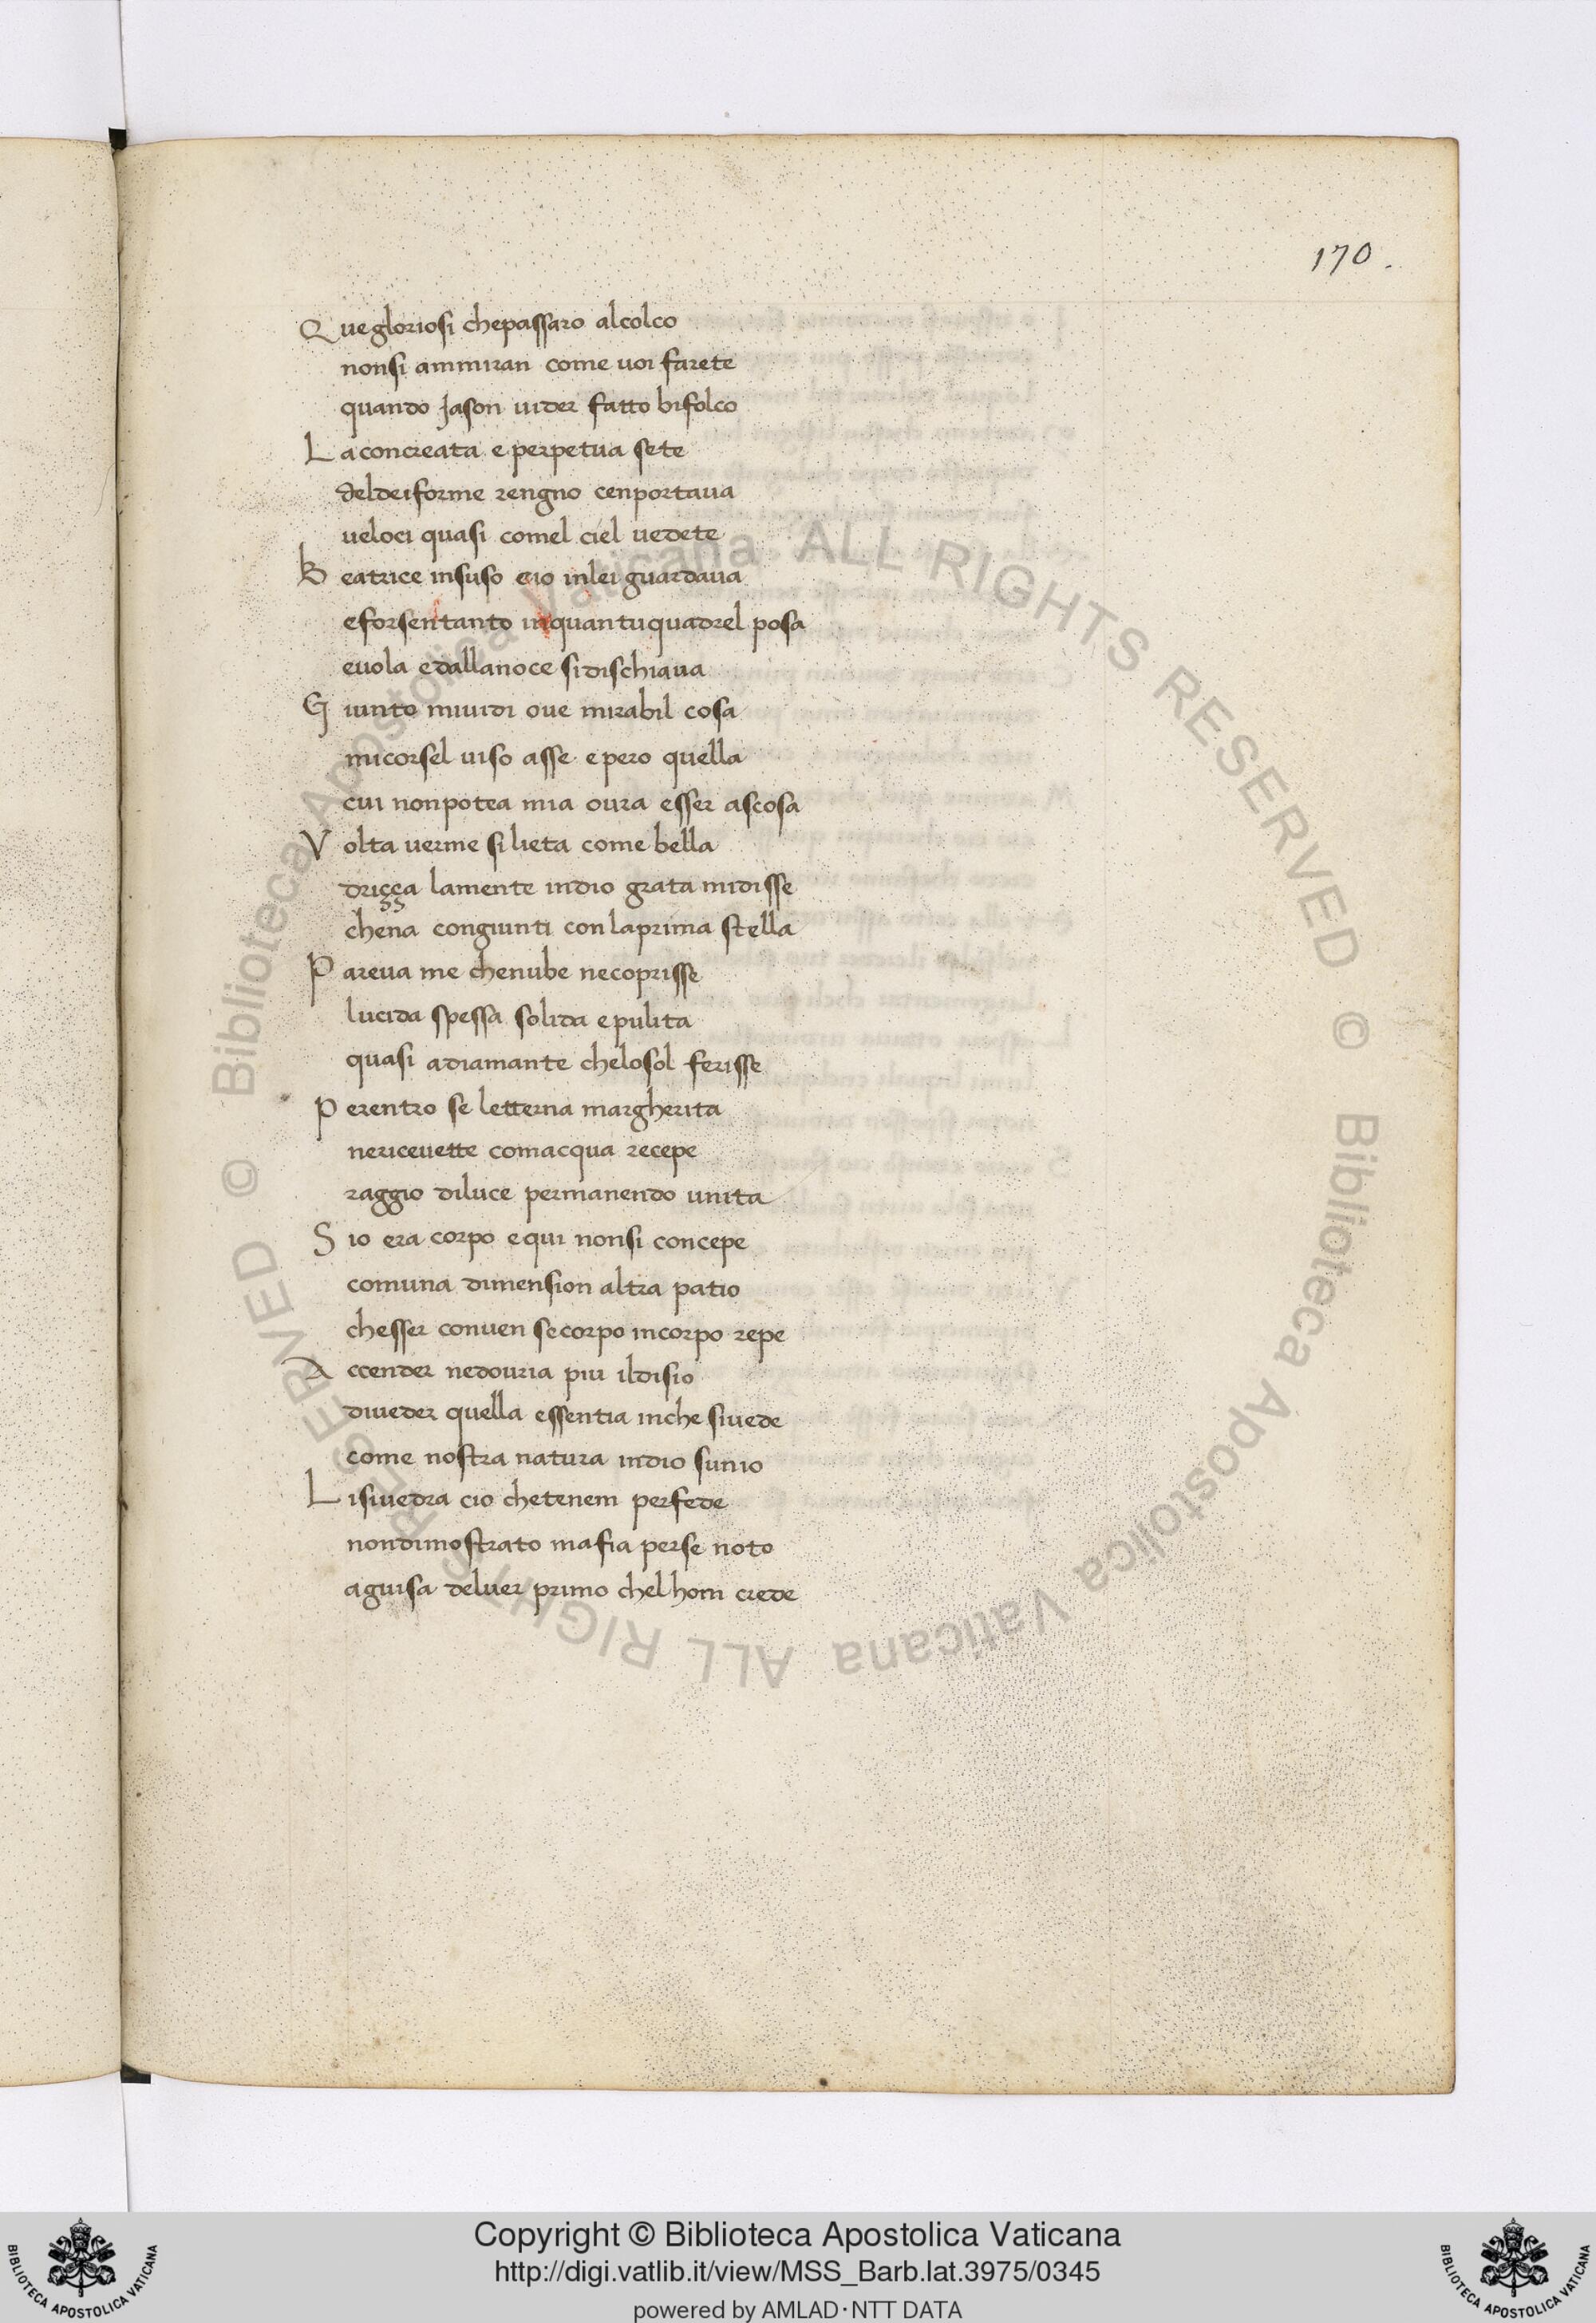 170.
Que gloriosi chepassaro alcolco
nonsi ammiran come uoi farete
quando Jason uider fatto bifolco
Laconcreata e perpetua sete
deldeiforme rengno cenportaua
ueloci quasi comel ciel uedete
Beatrice insuso eio inlei guardaua
eforsentanto inquantuquadrel posa
euola edallanoce sidischiaua
Giunto miuidi oue mirabil cosa
micorsel uiso asse epero quella
cui nonpotea mia oura esser ascosa
Volta uerme silieta come bella
driçça lamente indio grata midisse
chena congiunti conlaprima stella
Pareua me chenube necoprisse
lucida spessa solida epulita
quasi adiamante chelosol ferisse
Perentro se letterna margherita
nericeuette comacqua recepe
raggio diluce permanendo unita
Sio era corpo equi nonsi concepe
comuna dimension altra patio
chesser conuen secorpo incorpo repe
Accender nedouria piu ildisio
diueder quella essentia inche siuede
come nostra natura indio sunio
Lisiuedra cio chetenem perfede
nondimostrato mafia perse noto
aguisa deluer primo chelhom crede
© Biblioteca Apostolica Vaticana ALL RIGHTS RESERVED © Biblioteca Apostolica Vaticana ALL RIGHTS RESERVED
Copyright © Biblioteca Apostolica Vaticana
http://digi.vatlib.it/view/MSS_Barb.lat.3975/0345
powered by AMLAD·NTT DATA
BIBLIOTECA APOSTOLICA VATICANA
BIBLIOTECA APOSTOLICA VATICANA